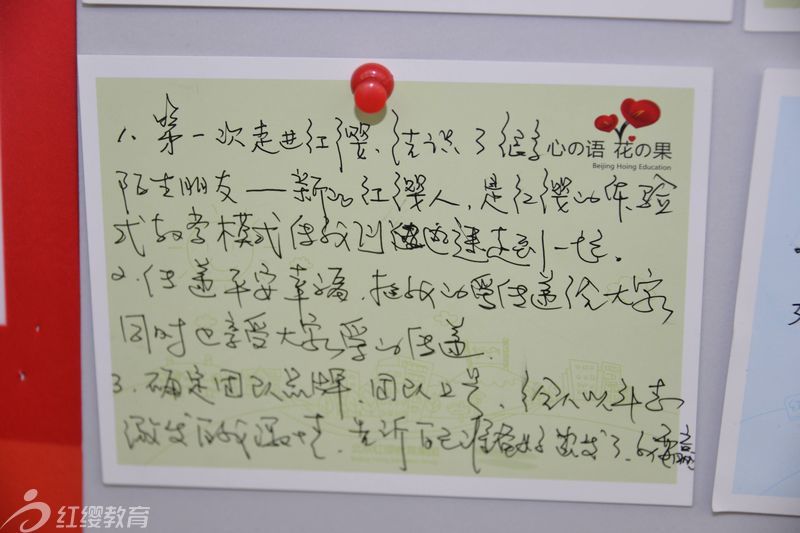 心の语 花の果
Beijing Hoing Education
1、第一次走进红缨、结识了很多
陌生朋友——新的红缨人,是红缨的体验
式教学模式使我们迅速走到一起。
2、传递平安幸福,把我的爱传递给大家
同时也享受大家爱的传递。
3、确定团队品牌,团队口号,给人以斗志
激发自我激情,告诉自己准备好出发了、
红缨教育